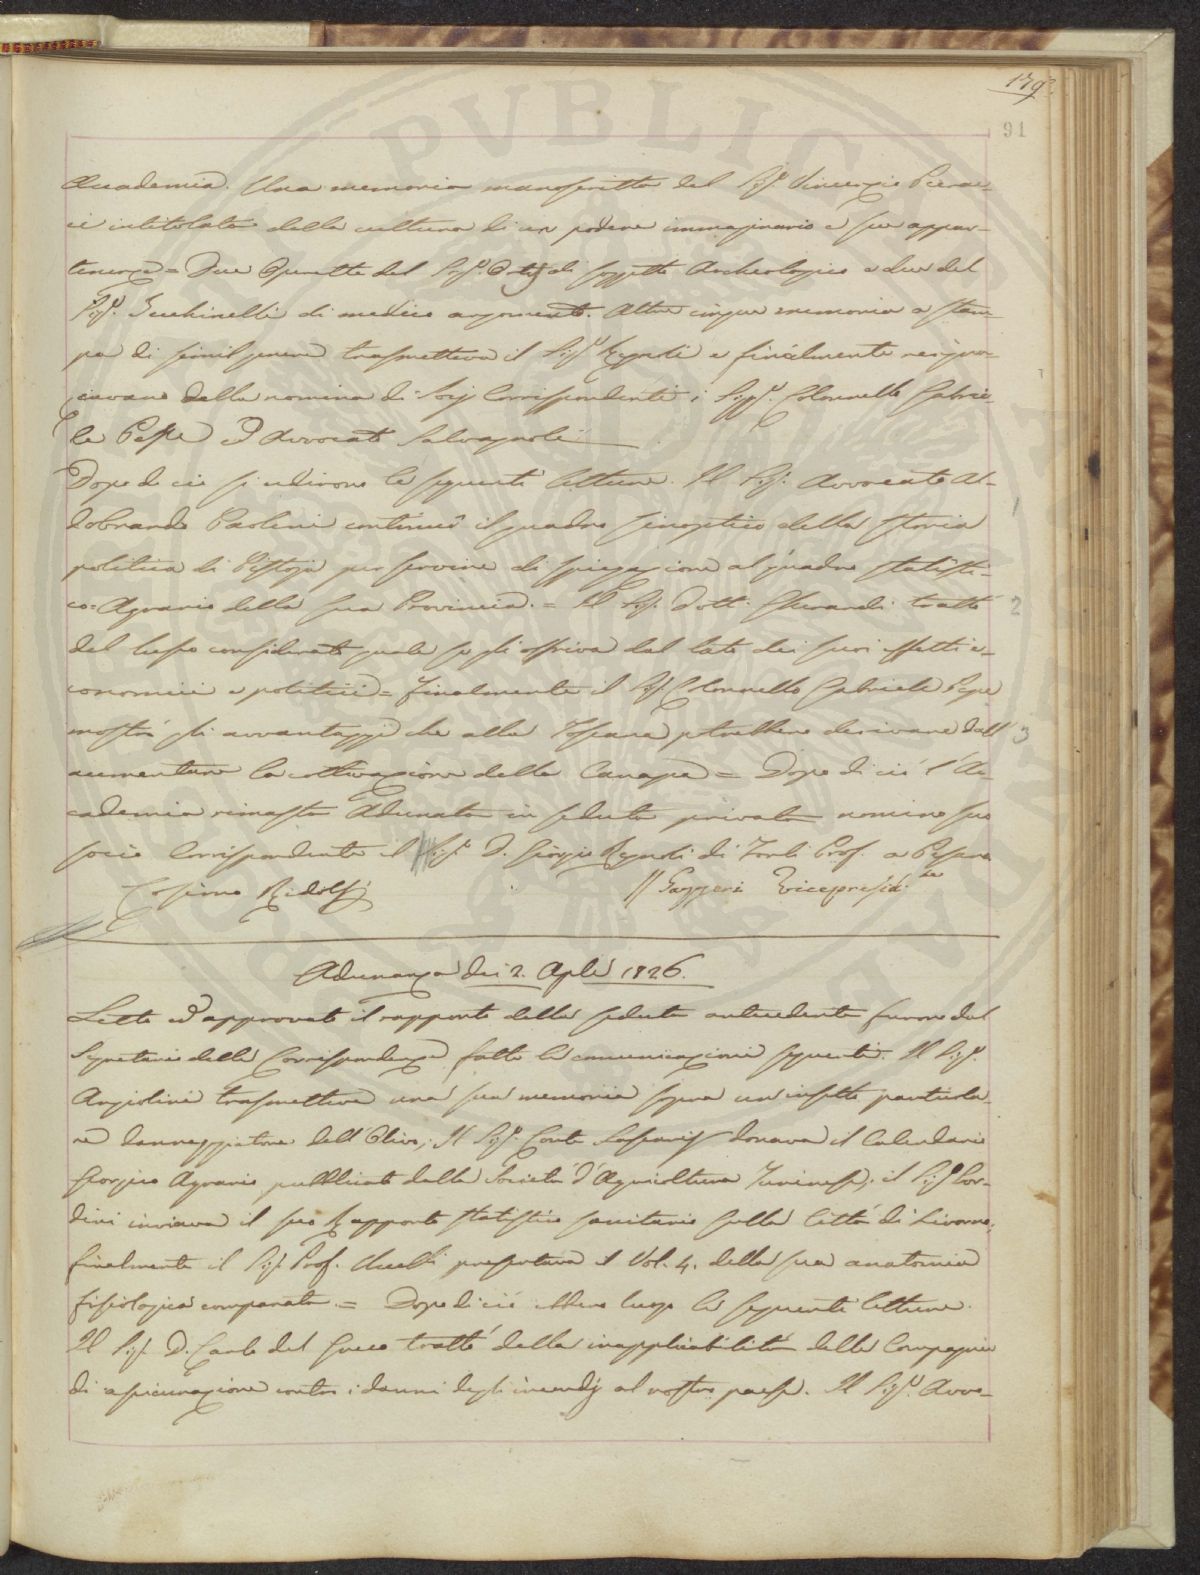 179.
91
Accademia. Una memoria manoscritta del Sig.r Vincenzio Pierac-
ci intitolata della cultura di un podere immaginario e sue appar-
tenenze = Due Operette del Sig.r di soggetto Archeologico e due del
Sig.r Gucchinelli di medico argomento. Altre cinque memorie a stam-
pa di simil genere trasmetteva il Sig.r Regnoli e finalmente ringra-
ziavano della nomina di Socj Corrispondenti i Sigg.ri Colonnello Gabrie-
le Pepe ed Avvocato Salvagnoli
Dopo di ciò si udirono le seguenti letture. Il Sig. Avvocato Al-
dobrando Paolini continuò il quadro sinoptico della storia
politica di Pistoja per servire di spiegazione al quadro statisti-
co=Agrario della sua Provincia. = Il Sig. Dott. Gherardi trattò
del lusso considerato quale se gli offriva dal lato dei suoi effetti e-
conomici e politici = Finalmente il Sig. Colonnello Gabriele Pepe
mostrò gli avvantaggi che alla Toscana potrebbero derivare dall'
aumentare la coltivazione della Canapa = Dopo di ciò l'Ac-
cademia rimasta Adunata in seduta privata nominò suo
socio Corrispondente il Sig.r D. Giorgio Regnoli di Forlì Prof. a Pesaro
Cosimo Ridolfi
Gazzeri Vicepresid.te
1
2
3
Adunanza dei 2. Aple 1826.
Letto ed approvato il rapporto della seduta antecedente furono dal
Segretario delle Corrispondenze fatte le comunicazioni seguenti. Il Sig.r
Angiolini trasmetteva una sua memoria sopra un insetto particola-
re danneggiatore dell'Olivo; Il Sig.r Conte donava il Calendario
Georgico Agrario pubblicato dalla Società d'Agricoltura Torinese; il Sig.r Gor-
dini inviava il suo Rapporto statistico sanitario sulla Città di Livorno;
finalmente il Sig. Prof. Uccelli presentava il Vol. 4. della sua anatomia
fisiologica comparata. = Dopo di ciò ebbero luogo le seguenti letture.
Il Sig. D. Carlo del Greco trattò della inapplicabilità delle Compagnie
di assicurazione contro i danni degli incendj al nostro paese. Il Sig.r Avvo-